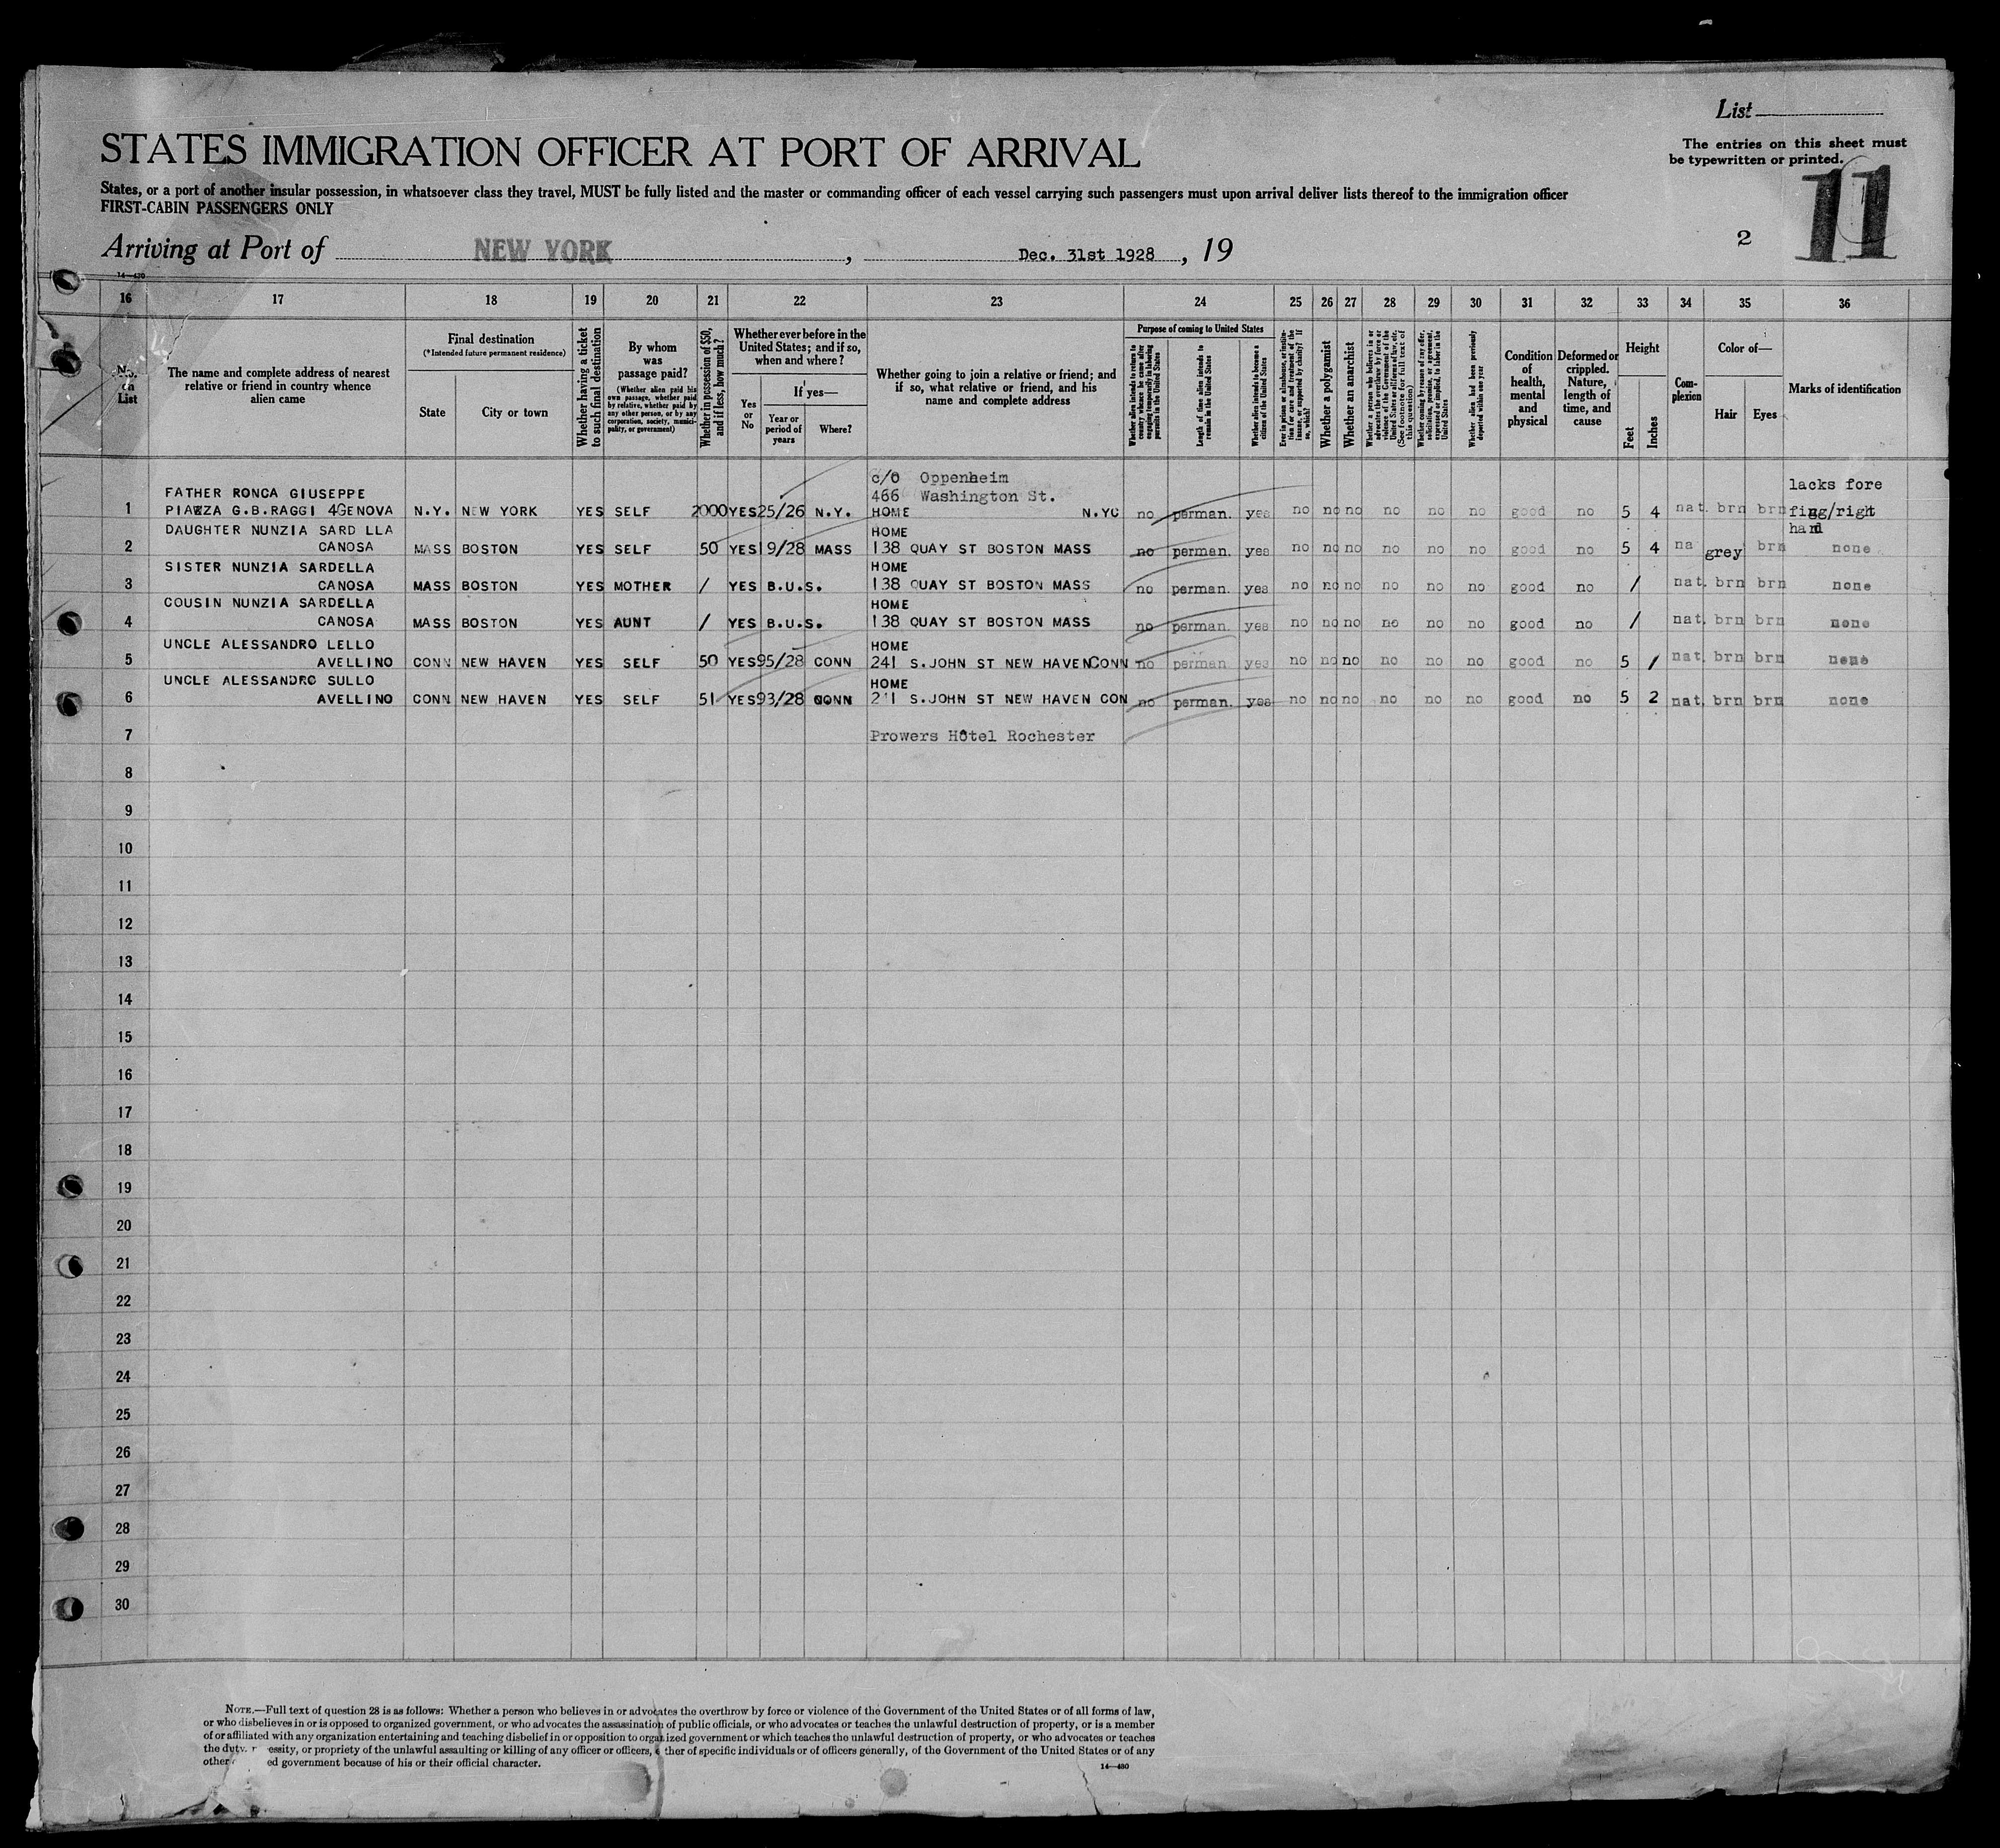 List
STATES IMMIGRATION OFFICER AT PORT OF ARRIVAL
The entries on this sheet must
be typewritten or printed.
States, or a port of another insular possession, in whatsoever class they travel, MUST be fully listed and the master or commanding officer of each vessel carrying such passengers must upon arrival deliver lists thereof to the immigration officer
FIRST-CABIN PASSENGERS ONLY
2 11
Arriving at Port of NEW YORK, Dec. 31st 1928, 19
14—430
16 17 18 19 20 21 22 23 24 25 26 27 28 29 30 31 32 33 34 35 36
No. on List
The name and complete address of nearest relative or friend in country whence alien came
Final destination
(*Intended future permanent residence)
State
City or town
Whether having a ticket to such final destination
By whom was passage paid?
(Whether alien paid his own passage, whether paid by relative, whether paid by any other person, or by any corporation, society, municipality, or government)
Whether in possession of $50, and if less, how much?
Whether ever before in the United States; and if so, when and where?
Yes or No
If yes—
Year or period of years
Where?
Whether going to join a relative or friend; and if so, what relative or friend, and his name and complete address
Purpose of coming to United States
Whether alien intends to return to country whence he came after engaging temporarily in laboring pursuits in the United States
Length of time alien intends to remain in the United States
Whether alien intends to become a citizen of the United States
Ever in prison or almshouse, or institution for care and treatment of the insane, or supported by charity? If so, which?
Whether a polygamist
Whether an anarchist
Whether a person who believes in or advocates the overthrow by force or violence of the Government of the United States or all forms of law, etc. (See footnote for full text of this question)
Whether coming by reason of any offer, solicitation, promise, or agreement, expressed or implied, to labor in the United States
Whether alien had been previously deported within one year
Condition of health, mental and physical
Deformed or crippled. Nature, length of time, and cause
Height
Feet
Inches
Complexion
Color of—
Hair
Eyes
Marks of identification
c/o Oppenheim
FATHER RONCA GIUSEPPE 466 Washington St. lacks fore
1 PIAZZA G.B.RAGGI 4 GENOVA N.Y. NEW YORK YES SELF 2000 YES 25/26 N.Y. HOME N.YC no perman. yes no no no no no no good no 5 4 nat. brn brn fing/right
hand
DAUGHTER NUNZIA SARD LLA HOME
2 CANOSA MASS BOSTON YES SELF 50 YES 19/28 MASS 138 QUAY ST BOSTON MASS no perman. yes no no no no no no good no 5 4 na grey brn none
SISTER NUNZIA SARDELLA HOME
3 CANOSA MASS BOSTON YES MOTHER / YES B.U.S. 138 QUAY ST BOSTON MASS no perman. yes no no no no no no good no / nat. brn brn none
COUSIN NUNZIA SARDELLA HOME
4 CANOSA MASS BOSTON YES AUNT / YES B.U.S. 138 QUAY ST BOSTON MASS no perman. yes no no no no no no good no / nat. brn brn none
UNCLE ALESSANDRO LELLO HOME
5 AVELLINO CONN NEW HAVEN YES SELF 50 YES 95/28 CONN 241 S.JOHN ST NEW HAVEN CONN no perman. yes no no no no no no good no 5 / nat. brn brn none
UNCLE ALESSANDRO SULLO HOME
6 AVELLINO CONN NEW HAVEN YES SELF 51 YES 93/28 CONN S.JOHN ST NEW HAVEN CON no perman. yes no no no no no no good no 5 2 nat. brn brn none
7 Prowers Hotel Rochester
8
9
10
11
12
13
14
15
16
17
18
19
20
21
22
23
24
25
26
27
28
29
30
NOTE.—Full text of question 28 is as follows: Whether a person who believes in or advocates the overthrow by force or violence of the Government of the United States or of all forms of law,
or who disbelieves in or is opposed to organized government, or who advocates the assassination of public officials, or who advocates or teaches the unlawful destruction of property, or is a member
of or affiliated with any organization entertaining and teaching disbelief in or opposition to organized government or which teaches the unlawful destruction of property, or who advocates or teaches
the duty, essity, or propriety of the unlawful assaulting or killing of any officer or officers, ther of specific individuals or of officers generally, of the Government of the United States or of any
other ed government because of his or their official character.
14—430